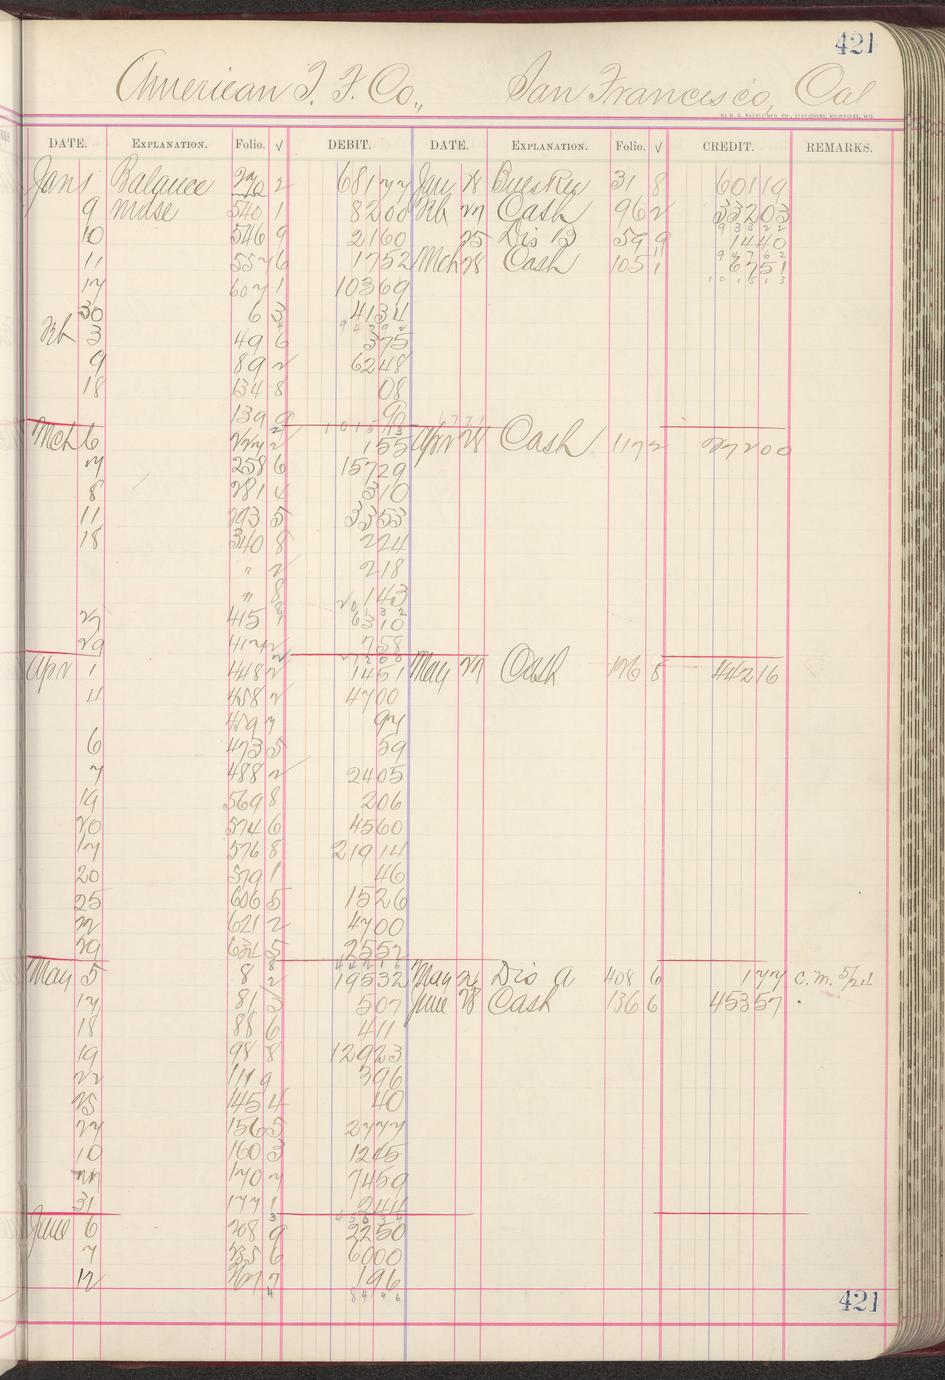 421
American T. F. Co., San Francisco, Cal
DATE. EXPLANATION. Folio. √ DEBIT. DATE. EXPLANATION. Folio. √ CREDIT. REMARKS.
Jan 1 Balance 270 2 681 77 Jan 28 31 8 601 19
9 mdse 540 1 82 00 Feb 27 Cash 96 2 332 03
10 546 9 21 60 25 Dis B 59 9 14 40
11 557 6 17 52 Mch 28 Cash 105 1 67 51
17 607 1 103 69
30 6 3 41 34
Feb 3 49 6 3 75
9 89 2 62 48
18 134 8 08
139 9 90
Mch 6 227 2 1 55 Apr 28 Cash 117 2 272 00
7 258 6 157 29
8 281 4 3 10
11 293 5 33 53
18 340 8 2 24
" 2 2 18
" 8 1 43
27 415 1 63 10
29 417 2 7 58
Apr 1 448 2 14 51 May 27 Cash 126 8 442 16
4 458 2 47 00
459 7 97
6 473 5 59
7 488 2 24 05
19 569 8 2 06
20 574 6 45 60
17 576 8 219 14
20 579 1 46
25 606 5 15 26
22 621 2 47 00
29 634 5 25 52
May 5 8 2 195 32 May 24 Dis a 408 6 1 77 C.M. 5/24
17 81 3 5 07 June 28 Cash 136 6 453 57
18 88 6 4 11
19 98 8 129 23
22 111 9 3 96
25 145 4 40
27 156 5 27 77
10 160 3 12 45
27 170 7 74 59
31 177 1 2 44
June 6 208 9 22 50
7 235 6 60 00
12 267 7 1 96
84 46
421